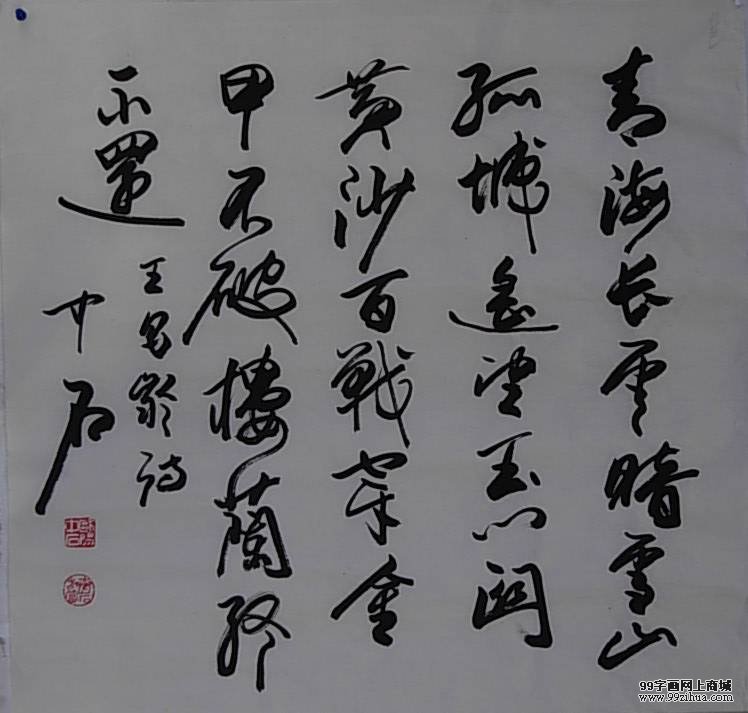 青海长雲暗雪山
孤城遥望玉门關
黄沙百戰穿金
甲不破樓蘭終
不還
王昌齡诗
中石
99字画网上商城
www.99zihua.com